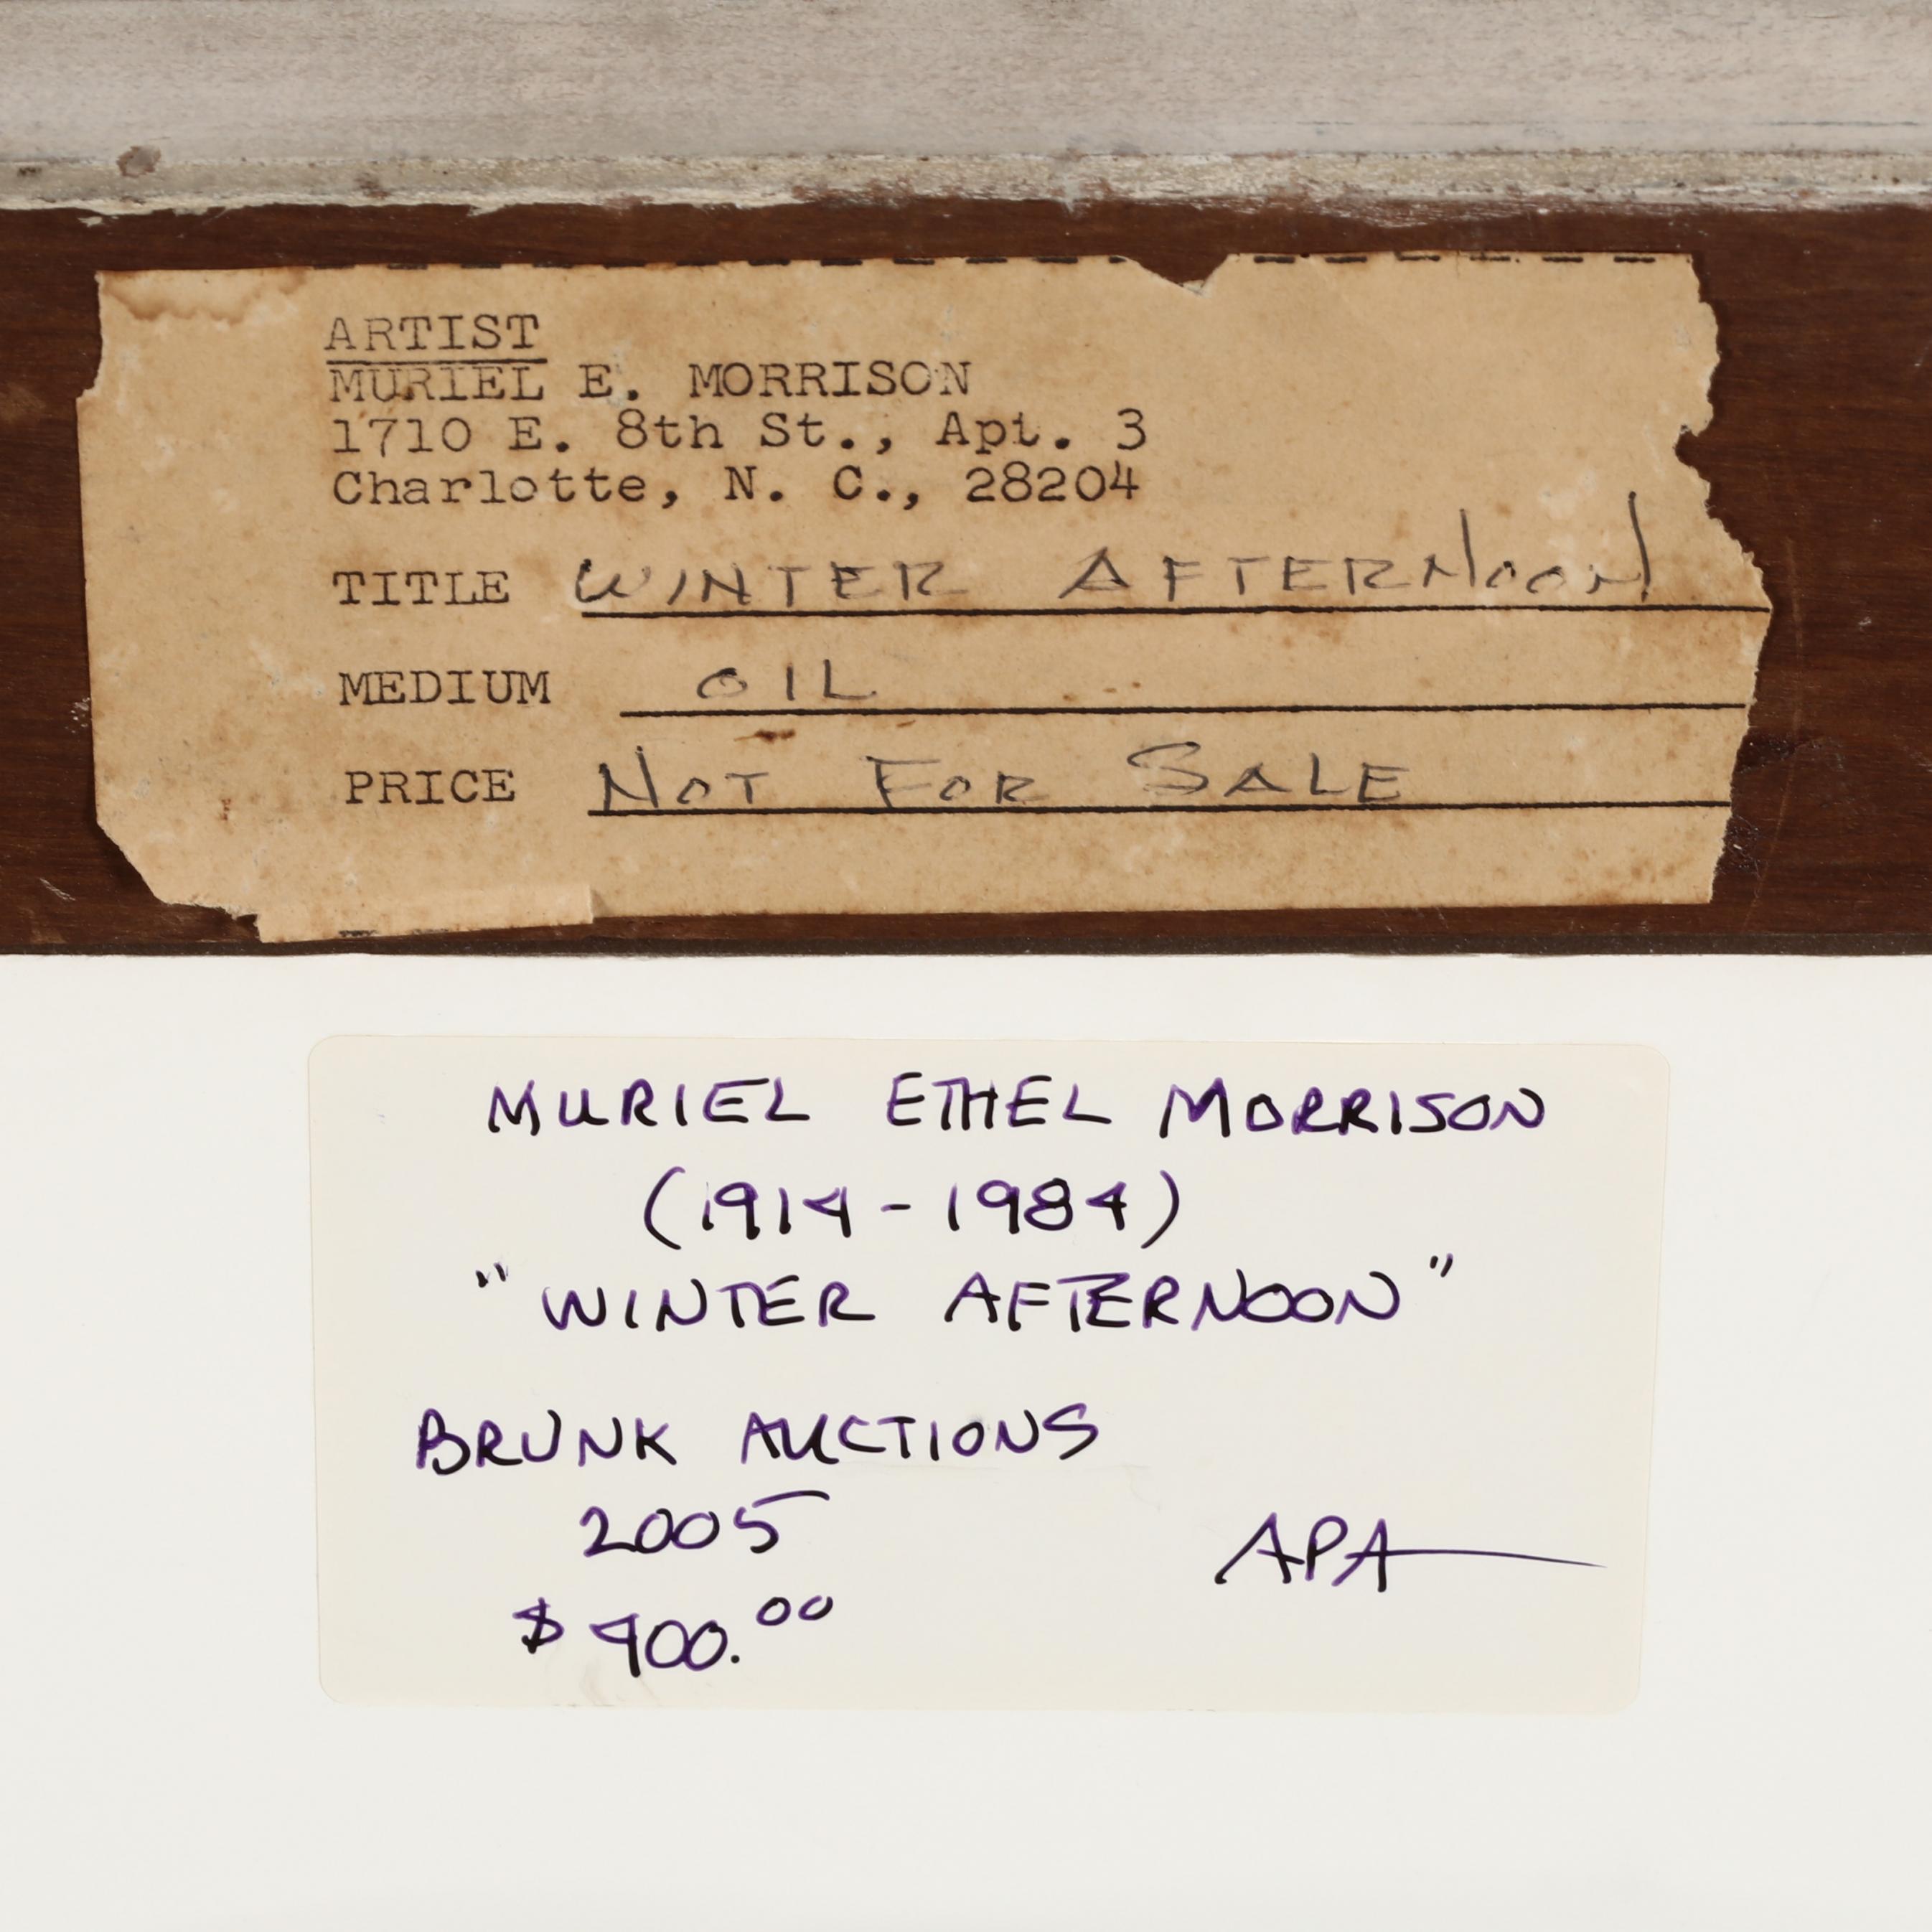 ARTIST
MURIEL E. MORRISON
1710 E. 8th St., Apt. 3
Charlotte, N. C., 28204
TITLE WINTER AFTERNOON
MEDIUM OIL
PRICE NOT FOR SALE
MURIEL ETHEL MORRISON
(1914-1984)
"WINTER AFTERNOON"
BRUNK AUCTIONS
2005
APA
$400.00